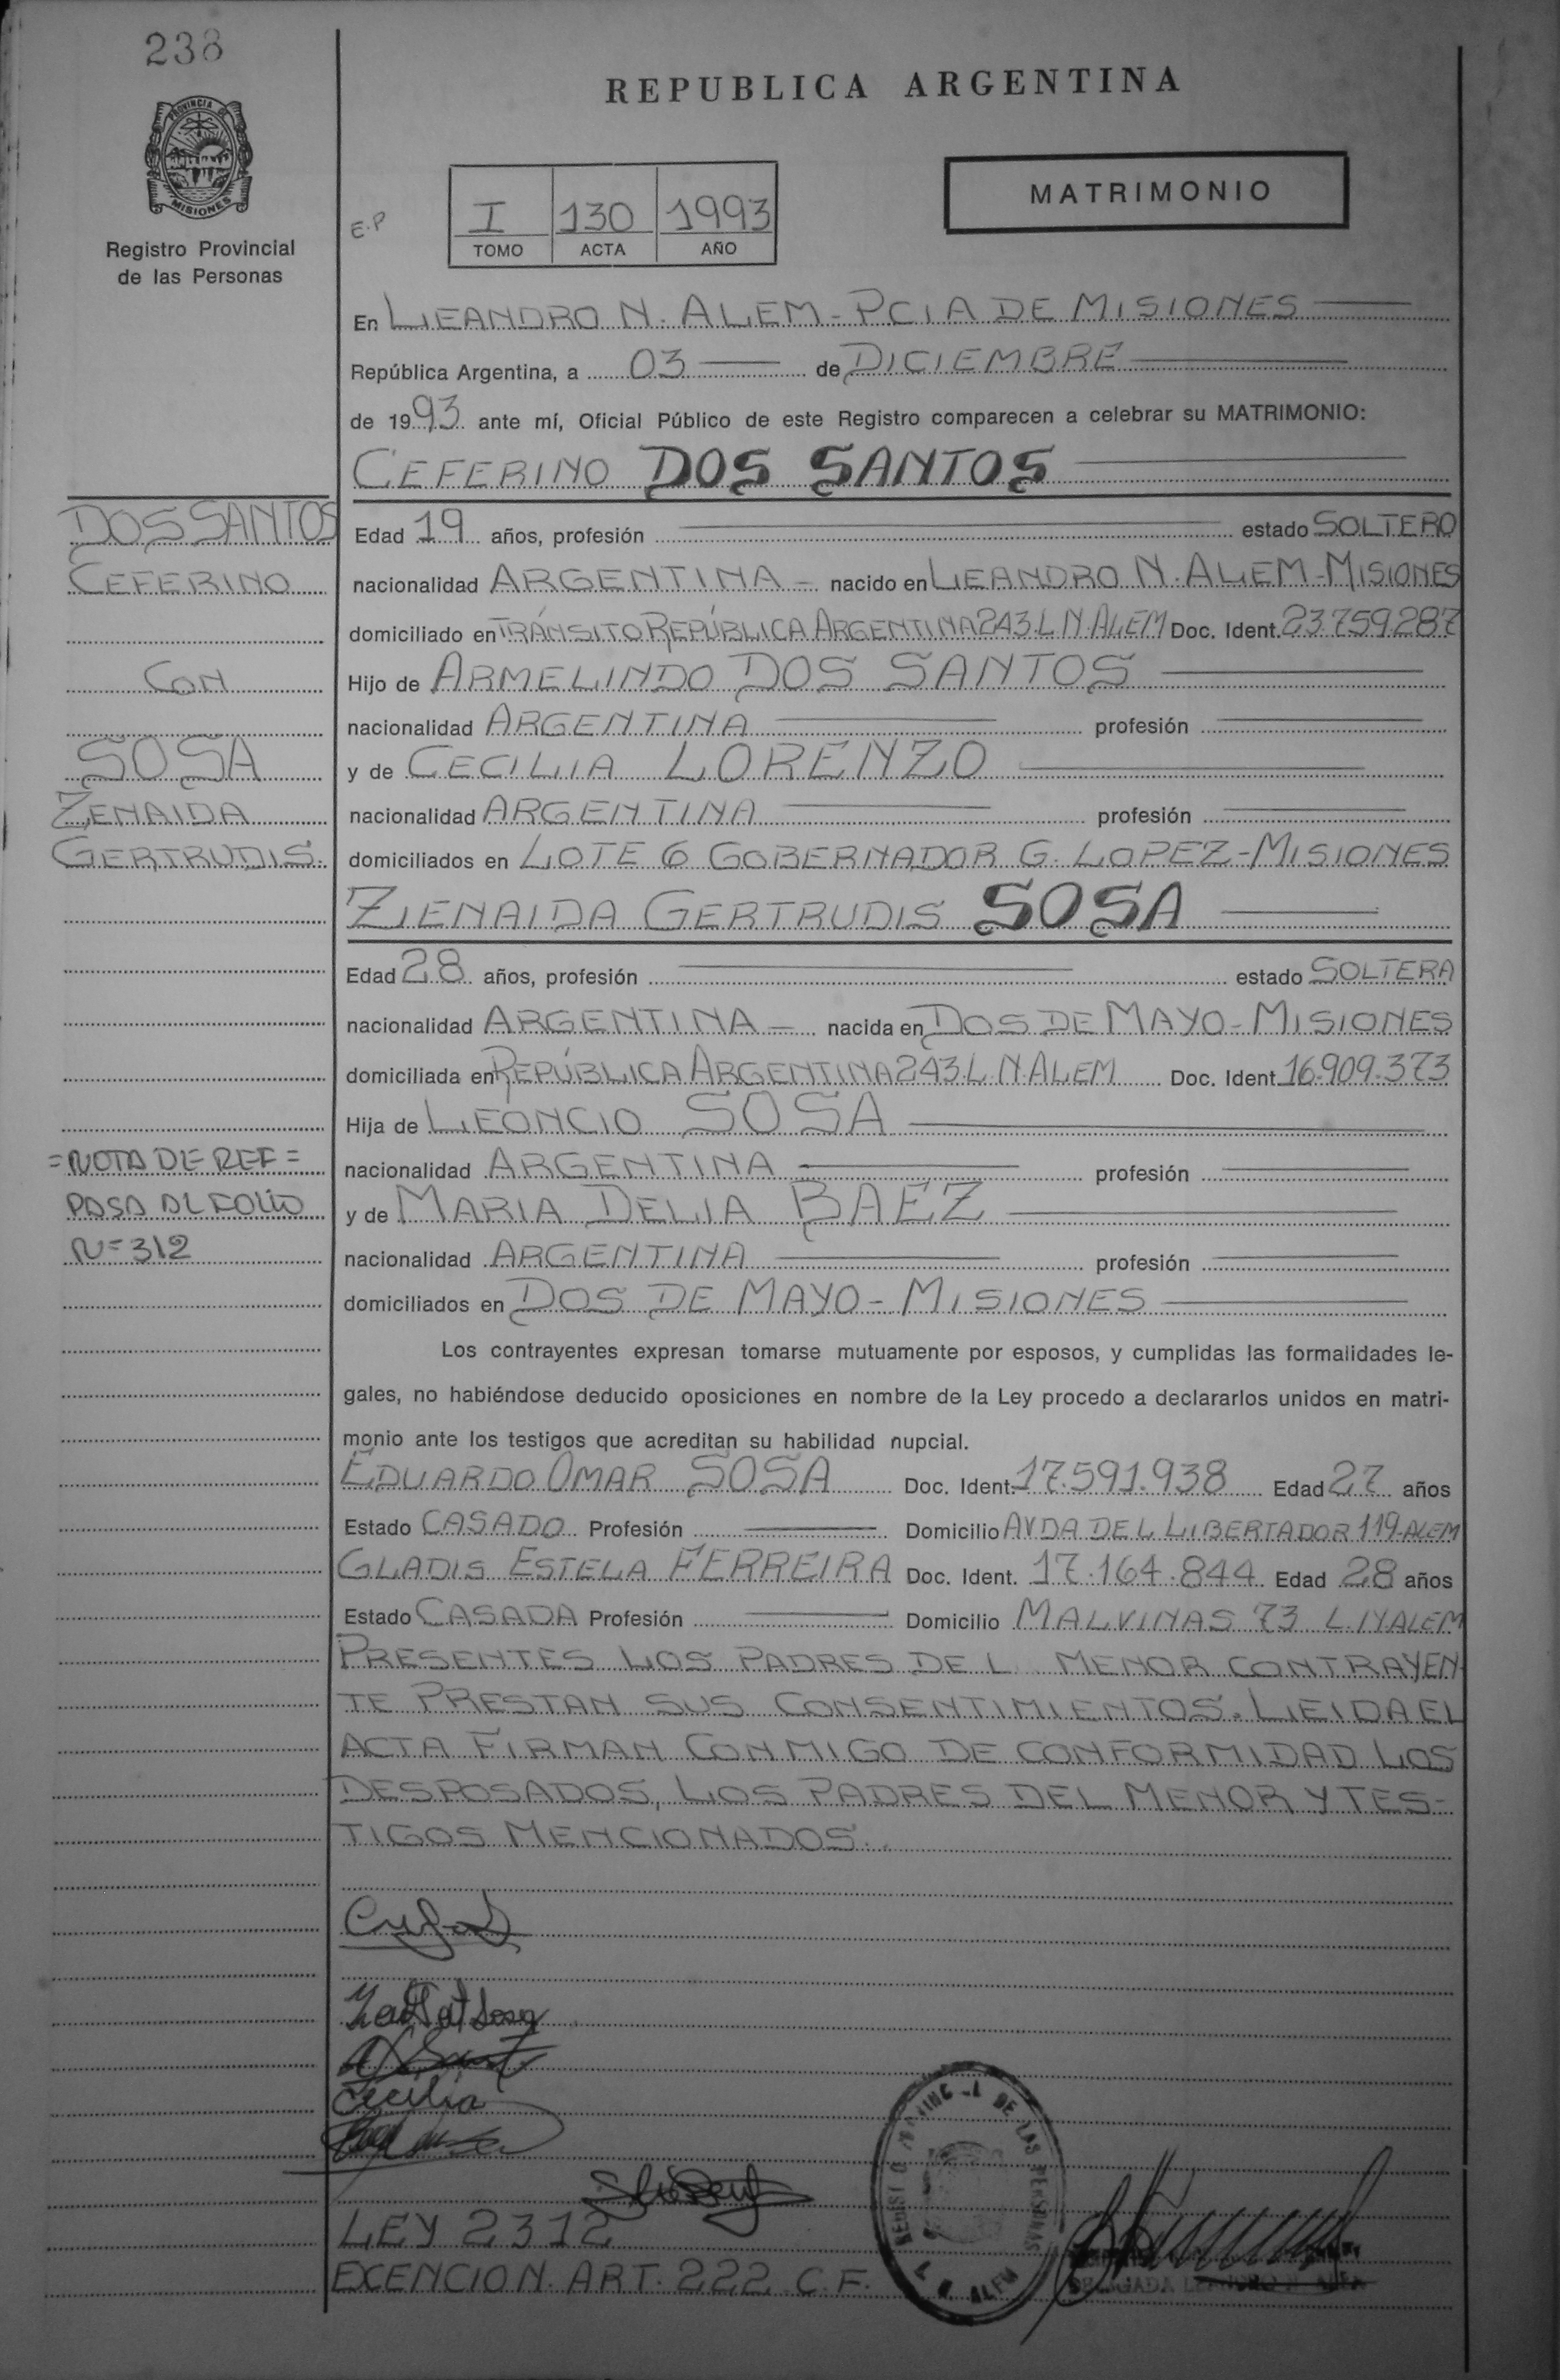 238
PROVINCIA DE
MISIONES
Registro Provincial
de las Personas
REPUBLICA ARGENTINA
MATRIMONIO
E.P
I 130 1993
TOMO ACTA AÑO
En LEANDRO N. ALEM - PCIA DE MISIONES
República Argentina, a 03 de DICIEMBRE
de 1993 ante mí, Oficial Público de este Registro comparecen a celebrar su MATRIMONIO:
CEFERINO DOS SANTOS
Edad 19 años, profesión estado SOLTERO
nacionalidad ARGENTINA - nacido en LEANDRO N. ALEM - MISIONES
domiciliado en TRÁNSITO REPÚBLICA ARGENTINA 243. L.N. ALEM Doc. Ident. 23.759.287
Hijo de ARMELINDO DOS SANTOS
nacionalidad ARGENTINA profesión
y de CECILIA LORENZO
nacionalidad ARGENTINA profesión
domiciliados en LOTE 6 GOBERNADOR G. LOPEZ - MISIONES
ZENAIDA GERTRUDIS SOSA
Edad 28 años, profesión estado SOLTERA
nacionalidad ARGENTINA - nacida en DOS DE MAYO - MISIONES
domiciliada en REPÚBLICA ARGENTINA 243. L.N. ALEM Doc. Ident. 16.909.373
Hija de LEONCIO SOSA
nacionalidad ARGENTINA profesión
y de MARIA DELIA BAEZ
nacionalidad ARGENTINA profesión
domiciliados en DOS DE MAYO - MISIONES
Los contrayentes expresan tomarse mutuamente por esposos, y cumplidas las formalidades le-
gales, no habiéndose deducido oposiciones en nombre de la Ley procedo a declararlos unidos en matri-
monio ante los testigos que acreditan su habilidad nupcial.
EDUARDO OMAR SOSA Doc. Ident. 17.591.938 Edad 27 años
Estado CASADO Profesión Domicilio AVDA DEL LIBERTADOR 119-ALEM
GLADIS ESTELA FERREIRA Doc. Ident. 17.164.844 Edad 28 años
Estado CASADA Profesión Domicilio MALVINAS 73 L.N ALEM
PRESENTES LOS PADRES DEL MENOR CONTRAYEN
TE PRESTAN SUS CONSENTIMIENTOS. LEIDA EL
ACTA FIRMAN CONMIGO DE CONFORMIDAD LOS
DESPOSADOS, LOS PADRES DEL MENOR Y TES-
TIGOS MENCIONADOS.
Cecilia
LEY 2312
EXENCION. ART. 222 C.F.
DE LAS PERSONAS
L. N. ALEM
DELEGADA LEANDRO N. ALEM
DOS SANTOS
CEFERINO
CON
SOSA
ZENAIDA
GERTRUDIS.
=NOTA DE REF=
PASA AL FOLIO
Nº 312